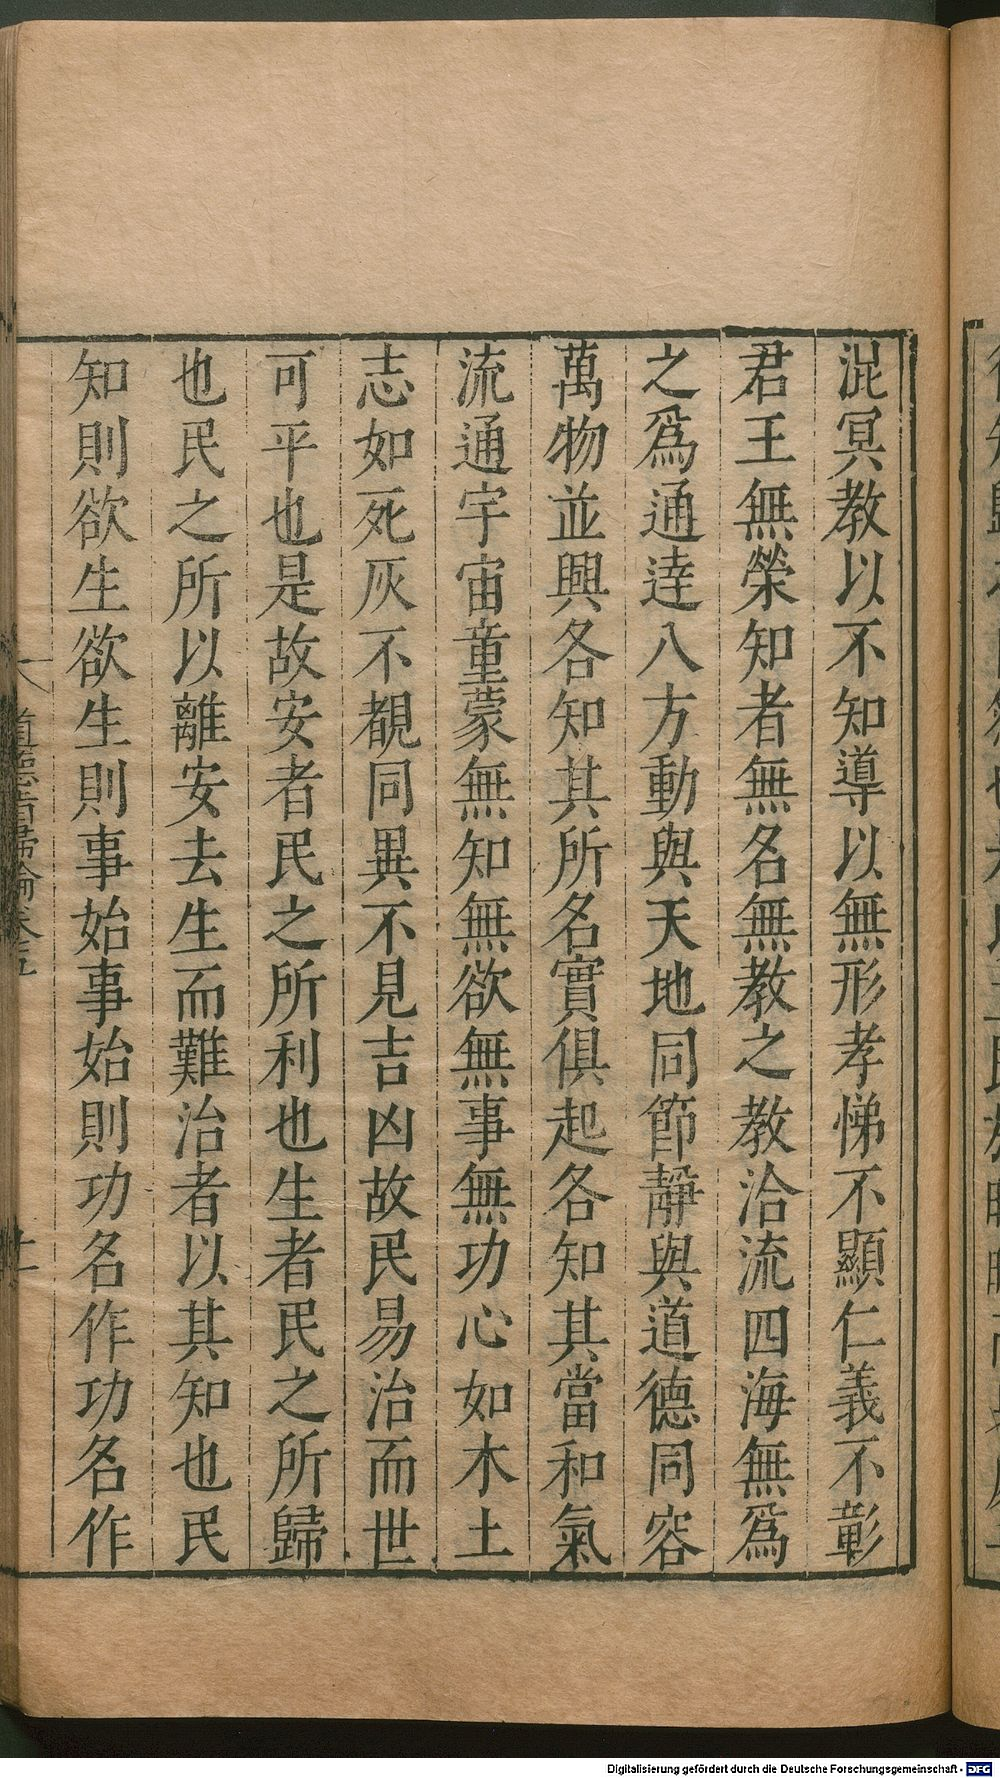 混冥教以不知導以無形孝悌不顯仁義不彰
君王無榮知者無名無教之教洽流四海無爲
之爲通逹八方動與天地同節靜與道德同容
萬物並興各知其所名實俱起各知其當和氣
流通宇宙童蒙無知無欲無事無功心如木土
志如死灰不覩同異不見吉凶故民易治而世
可平也是故安者民之所利也生者民之所歸
也民之所以離安去生而難治者以其知也民
知則欲生欲生則事始事始則功名作功名作
道德指歸論卷之五
Digitalisierung gefördert durch die Deutsche Forschungsgemeinschaft - DFG